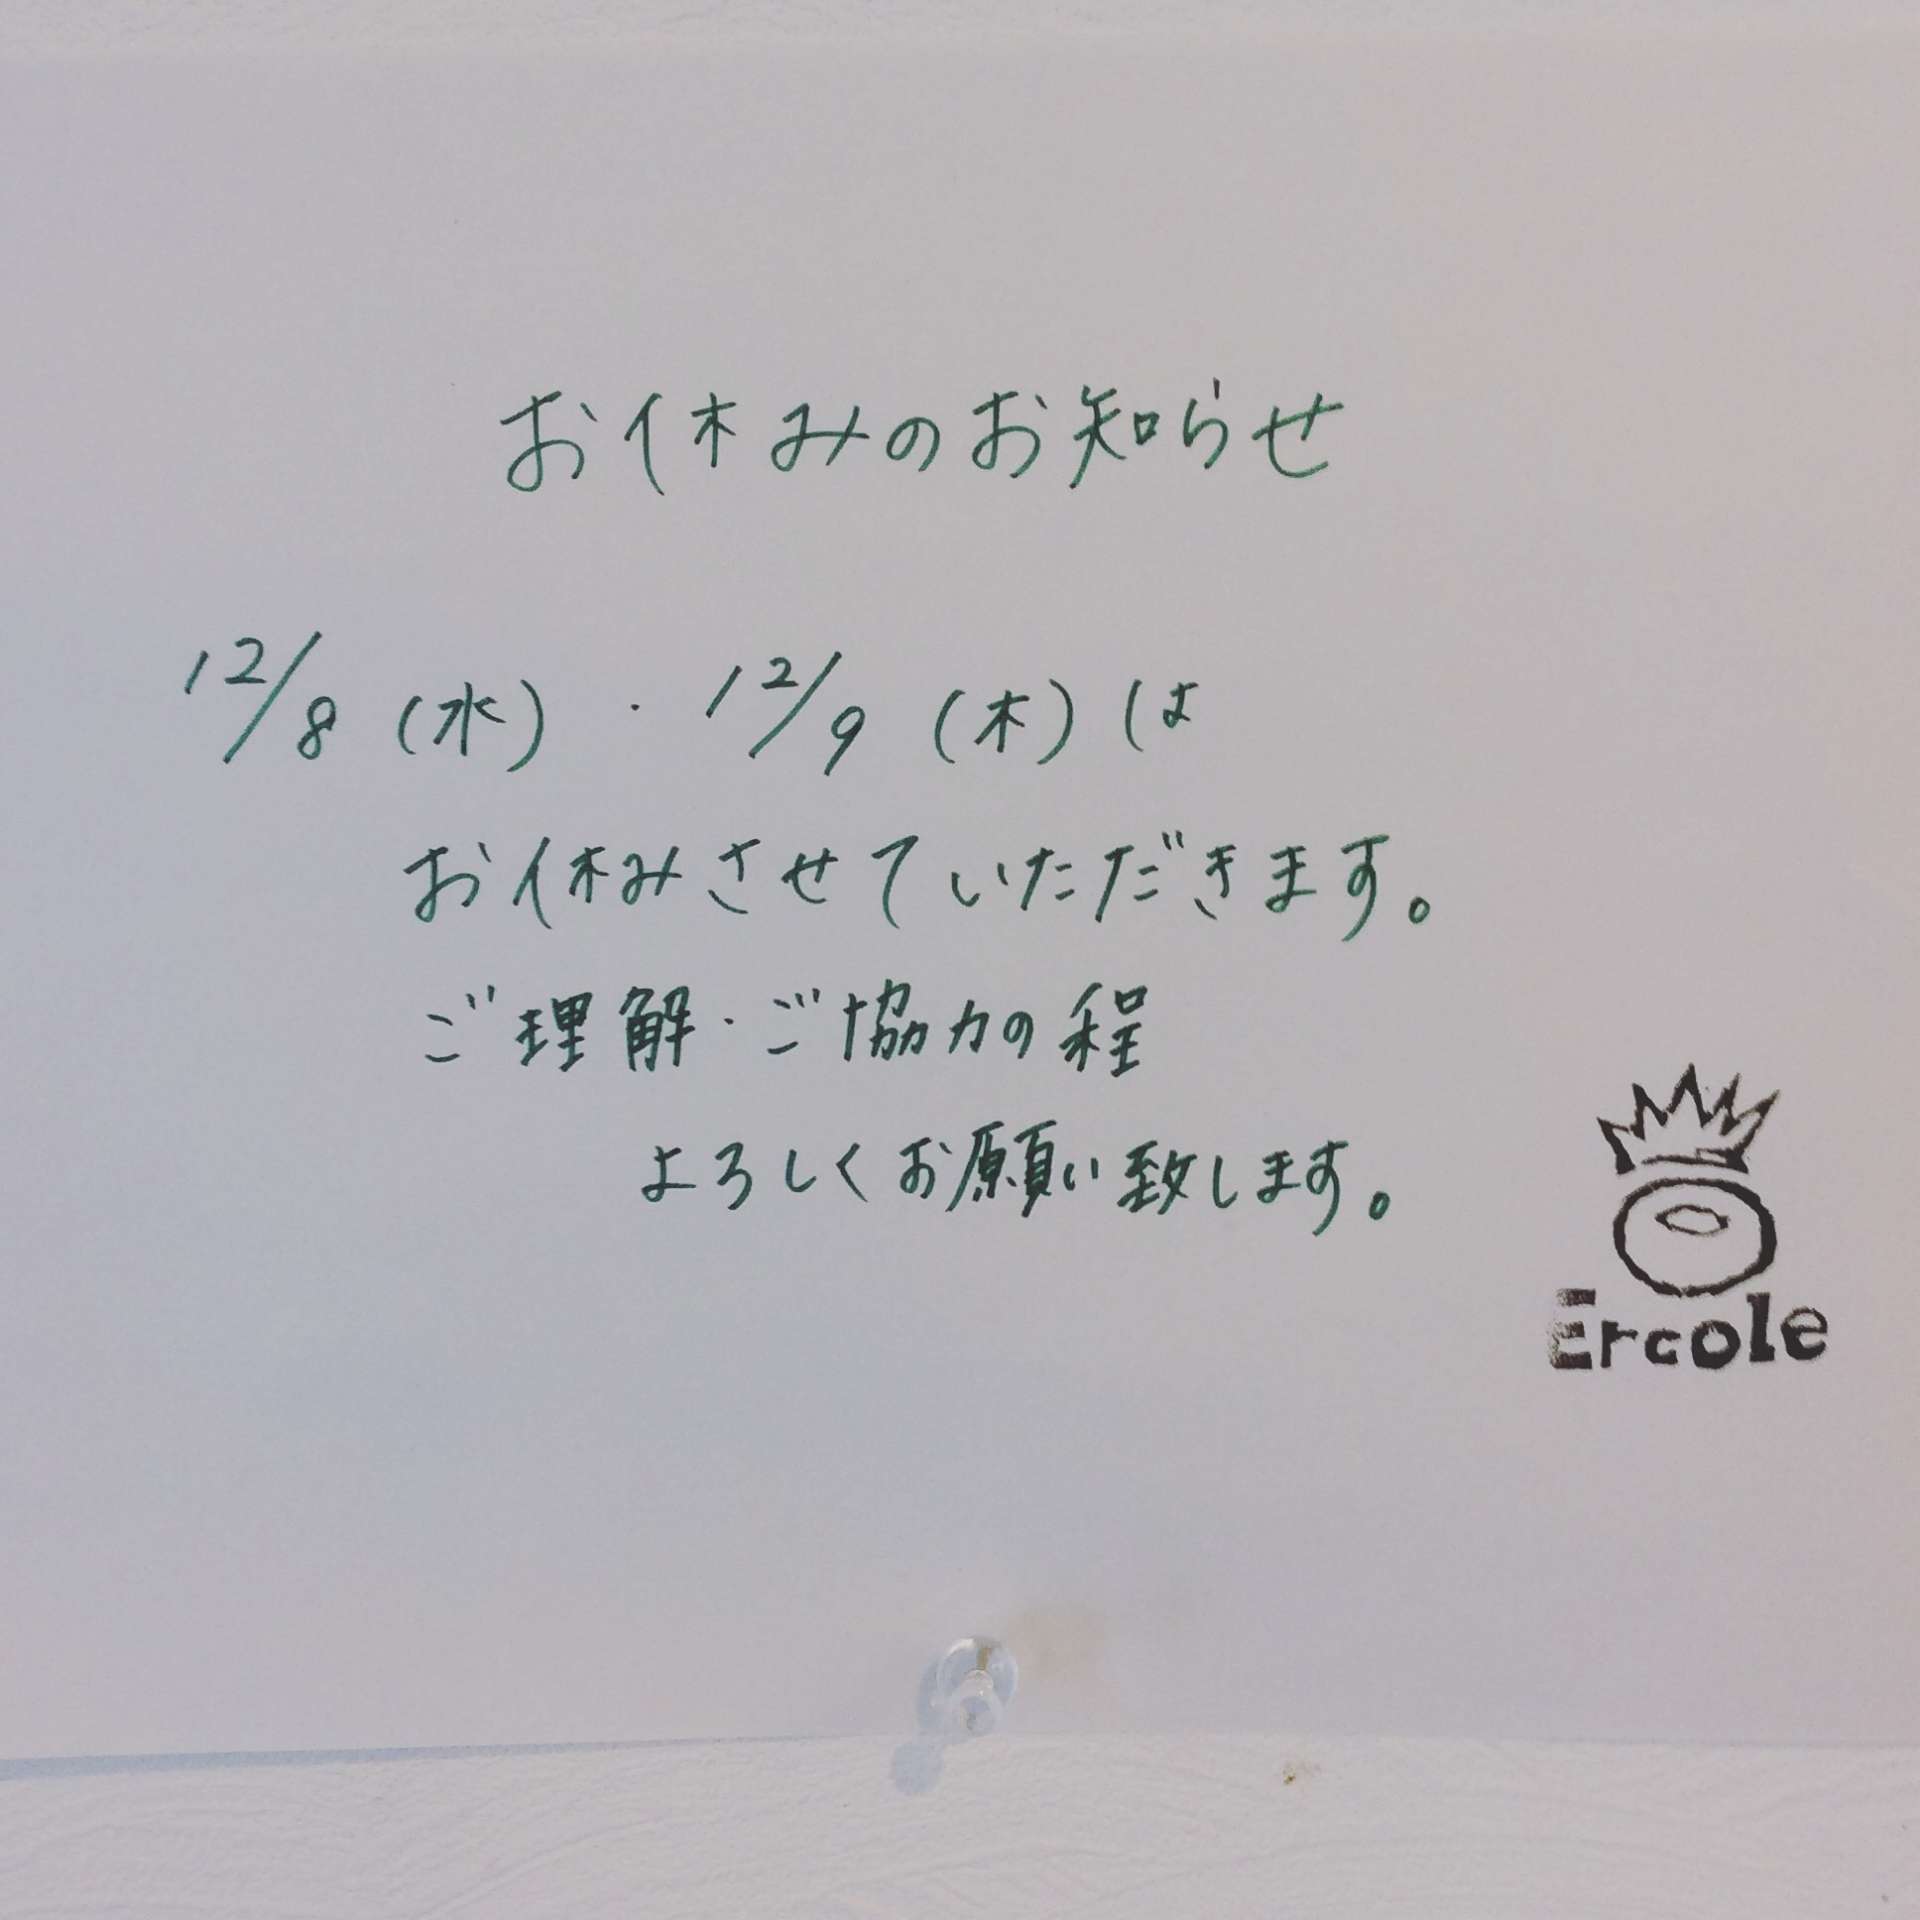 お休みのお知らせ
12/8(水)・12/9(木)は
お休みさせていただきます。
ご理解・ご協力の程
よろしくお願い致します。
Ercole